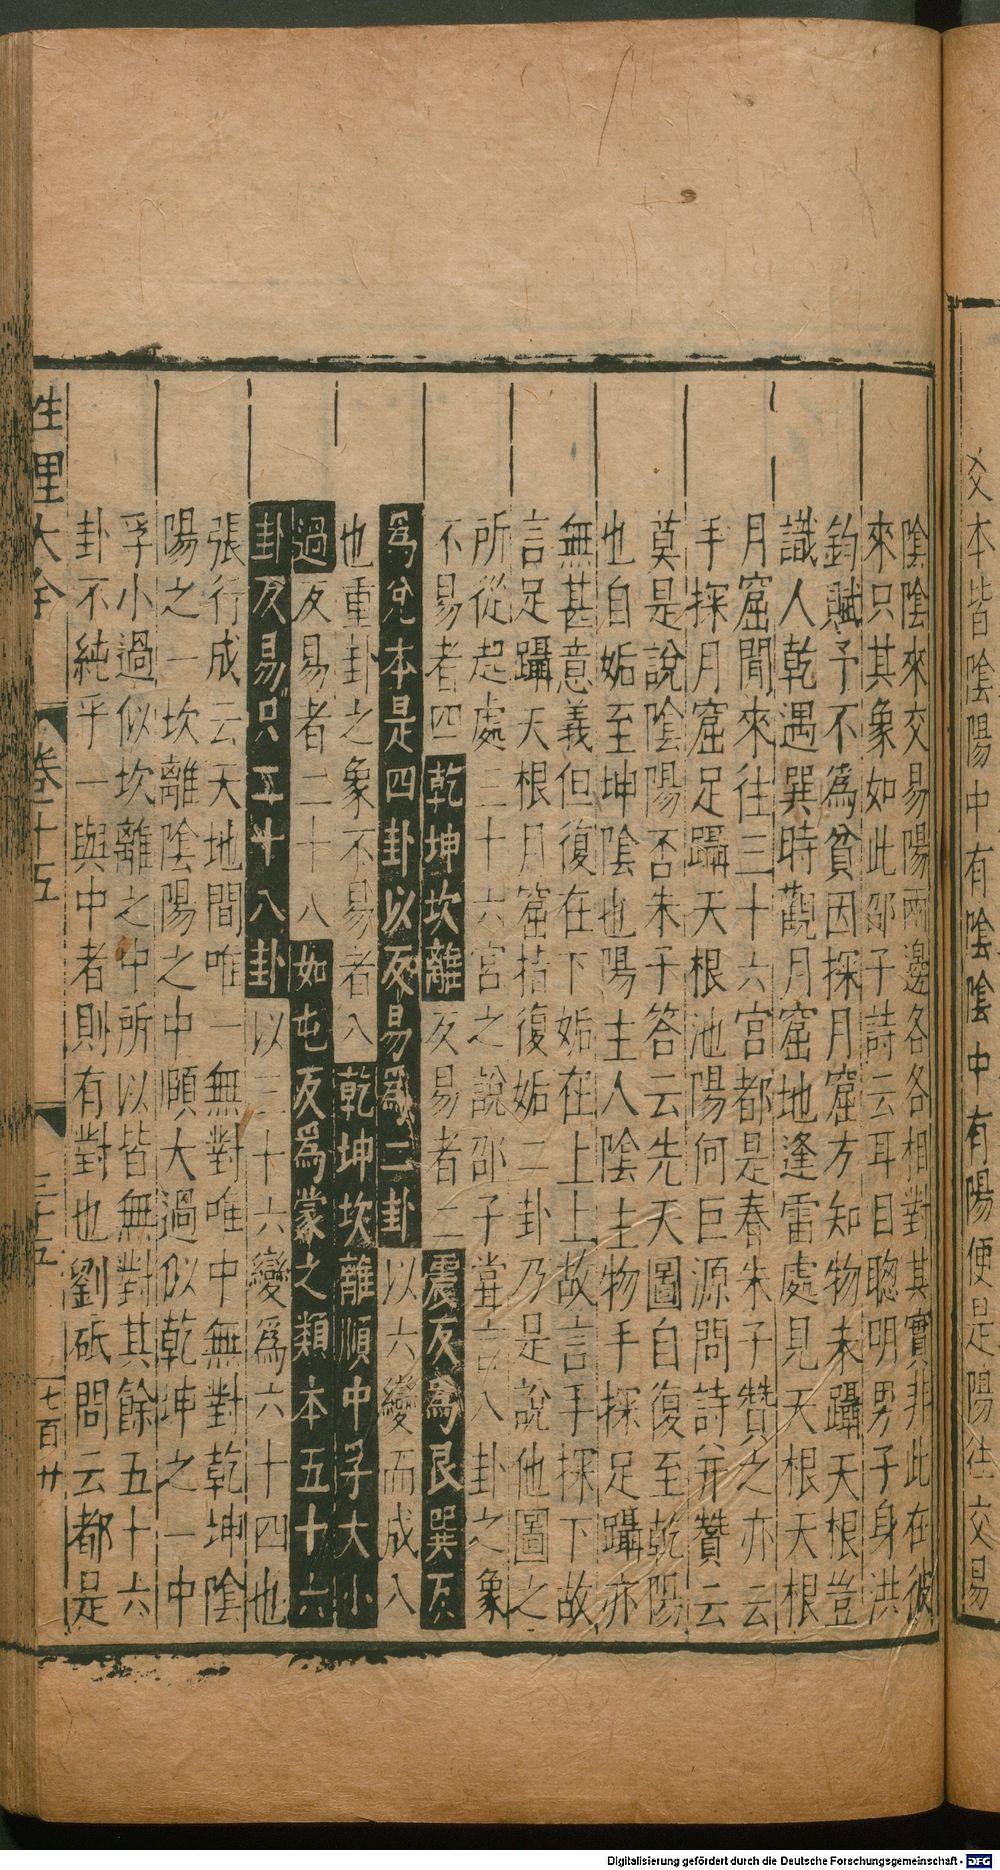 爻本皆陰陽中有陰陰中有陽便是陽往交易
陰陰來交易陽兩邊各各相對其實非此在彼
來只其象如此邵子詩云耳目聰明男子身洪
鈞賦予不為貧因探月窟方知物未躡天根豈
識人乾遇巽時觀月窟地逢雷處見天根天根
月窟閒來往三十六宮都是春朱子贊之亦云
手探月窟足躡天根池陽何巨源問詩并贊云
莫是說陰陽否朱子答云先天圖自復至乾陽
也自姤至坤陰也陽主人陰主物手探足躡亦
無甚意義但復在下姤在上上故言手探下故
言足躡天根月窟指復姤二卦乃是說他圖之
所從起處三十六宮之說邵子嘗言八卦之象
不易者四乾坤坎離反易者二震反為艮巽反
為兌本是四卦以反易為二卦以六變而成八
也重卦之象不易者八乾坤坎離頤中孚大小
過反易者二十八如屯反為蒙之類本五十六
卦反易只二十八卦以三十六變為六十四也
張行成云天地間唯一無對唯中無對乾坤陰
陽之一坎離陰陽之中頤大過似乾坤之一中
孚小過似坎離之中所以皆無對其餘五十六
卦不純乎一與中者則有對也劉砥問云都是
性理大全 卷十五 三十五 七百廿
Digitalisierung gefördert durch die Deutsche Forschungsgemeinschaft - DFG